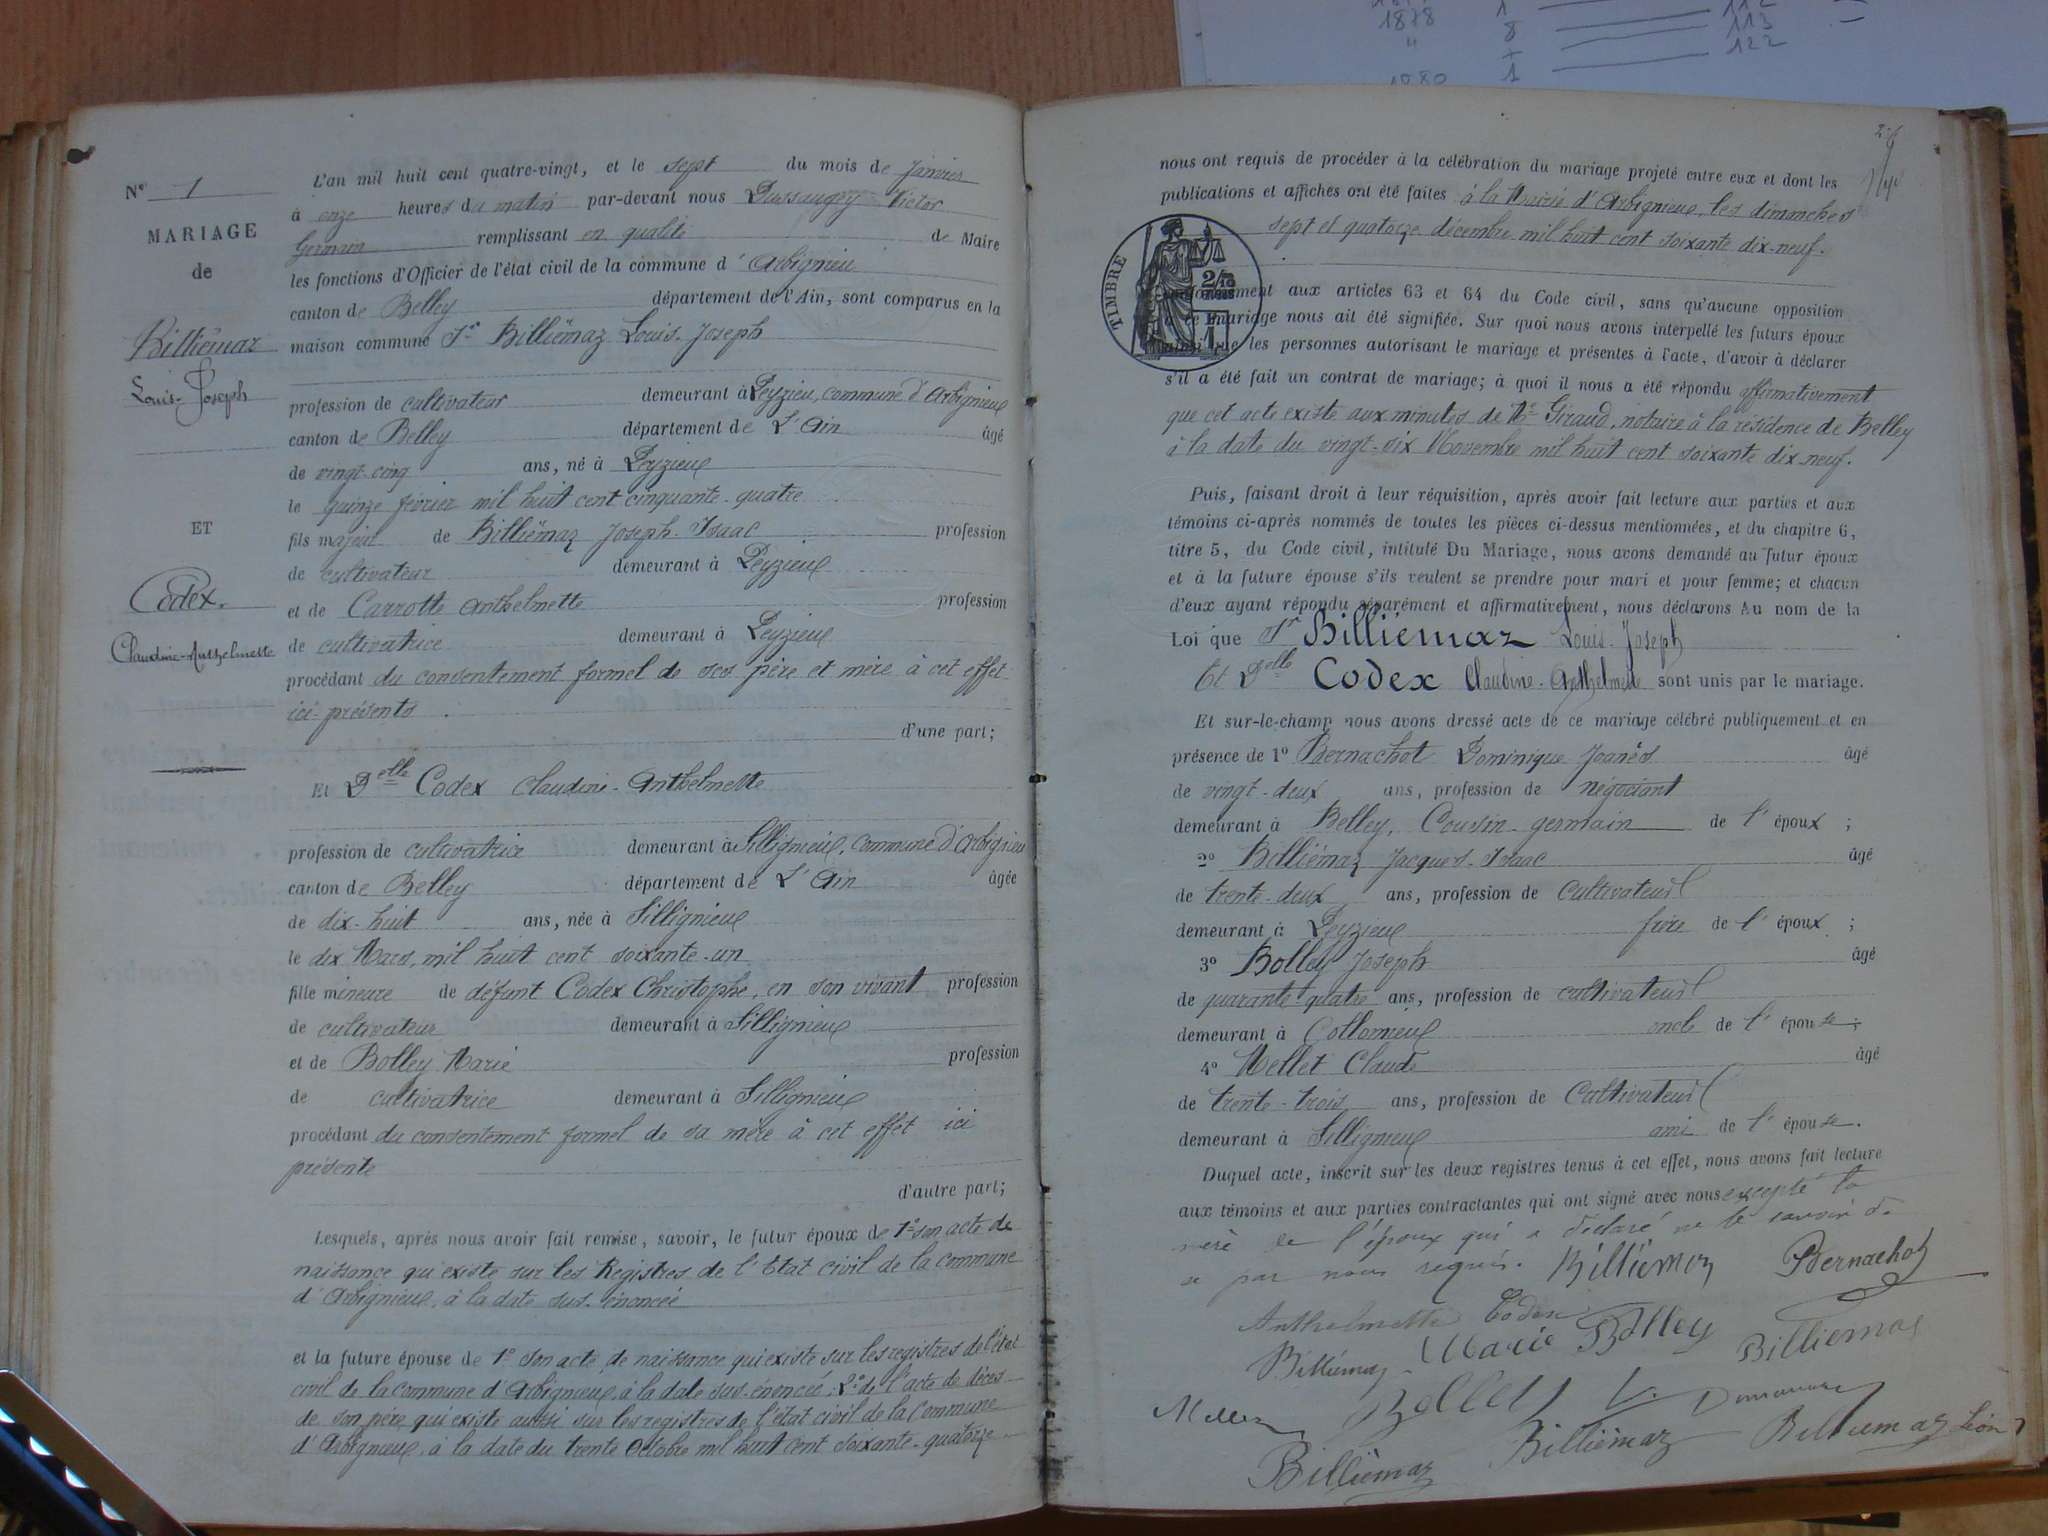 1878 1 112
" 8 113
1 122
1880 1
Nº 1
MARIAGE
de
Billiémaz
Louis-Joseph
ET
Codex.
Claudine-Anthelmette
L'an mil huit cent quatre-vingt, et le sept du mois de janvier
à onze heures du matin par-devant nous Dussaugey Victor
Germain remplissant en qualité de Maire
les fonctions d'Officier de l'état civil de la commune d'Arbignieu
canton de Belley département de l'Ain, sont comparus en la
maison commune Sr Billiémaz Louis-Joseph
profession de cultivateur demeurant à Peyzieu, commune d'Arbignieu
canton de Belley département de L'Ain âgé
de vingt-cinq ans, né à Peyzieu
le quinze février mil huit cent cinquante-quatre
fils majeur de Billiémaz Joseph-Isaac profession
de cultivateur demeurant à Peyzieu
et de Carrotte Anthelmette profession
de cultivatrice demeurant à Peyzieu
procédant du consentement formel de ses père et mère à cet effet
ici-présents.
d'une part;
Et Delle Codex Claudine-Anthelmette
profession de cultivatrice demeurant à Sillignieu, commune d'Arbignieu
canton de Belley département de L'Ain âgée
de dix-huit ans, née à Sillignieu
le dix Mars, mil huit cent soixante-un
fille mineure de défunt Codex Christophe, en son vivant profession
de cultivateur demeurant à Sillignieu
et de Bolley Marie profession
de cultivatrice demeurant à Sillignieu
procédant du consentement formel de sa mère à cet effet ici
présente
d'autre part;
Lesquels, après nous avoir fait remise, savoir, le futur époux de 1º son acte de
naissance qui existe sur les Registres de l'Etat civil de la commune
d'Arbignieu, à la date sus-énoncée
et la future épouse de 1º son acte de naissance qui existe sur les registres de l'état
civil de la commune d'Arbignieu, à la date sus-énoncée; 2º de l'acte de décès
de son père qui existe aussi sur les registres de l'état civil de la Commune
d'Arbignieu, à la date du trente Octobre mil huit cent soixante-quatorze
nous ont requis de procéder à la célébration du mariage projeté entre eux et dont les
publications et affiches ont été faites à la Mairie d'Arbignieu, les dimanches
sept et quatorze décembre mil huit cent soixante dix-neuf.
TIMBRE
conformément aux articles 63 et 64 du Code civil, sans qu'aucune opposition
à ce mariage nous ait été signifiée. Sur quoi nous avons interpellé les futurs époux
ainsi que les personnes autorisant le mariage et présentes à l'acte, d'avoir à déclarer
s'il a été fait un contrat de mariage; à quoi il nous a été répondu affirmativement
que cet acte existe aux minutes de Me Giraud, notaire à la résidence de Belley
à la date du vingt-six Novembre mil huit cent soixante dix-neuf.
Puis, faisant droit à leur réquisition, après avoir fait lecture aux parties et aux
témoins ci-après nommés de toutes les pièces ci-dessus mentionnées, et du chapitre 6,
titre 5, du Code civil, intitulé Du Mariage, nous avons demandé au futur époux
et à la future épouse s'ils veulent se prendre pour mari et pour femme; et chacun
d'eux ayant répondu séparément et affirmativement, nous déclarons Au nom de la
Loi que Sr Billiémaz Louis-Joseph
Et Delle Codex Claudine-Anthelmette sont unis par le mariage.
Et sur-le-champ nous avons dressé acte de ce mariage célébré publiquement et en
présence de 1º Bernachot Dominique Joanès âgé
de vingt-deux ans, profession de négociant
demeurant à Belley, Cousin-germain de l'époux;
2º Billiémaz Jacques-Isaac âgé
de trente-deux ans, profession de cultivateur
demeurant à Peyzieu frère de l'époux;
3º Bolley Joseph âgé
de quarante-quatre ans, profession de cultivateur
demeurant à Collomieu oncle de l'épouse;
4º Mellet Claude âgé
de trente-trois ans, profession de Cultivateur
demeurant à Sillignieu ami de l'épouse.
Duquel acte, inscrit sur les deux registres tenus à cet effet, nous avons fait lecture
aux témoins et aux parties contractantes qui ont signé avec nous excepté la
mère de l'époux qui a déclaré ne le savoir de
ce par nous requis. Billiémaz Bernachot
Anthelmette Codex
Billiémaz Marie Bolley Billiemaz
Bolley
Billiémaz Billiémaz Billiemaz Léon